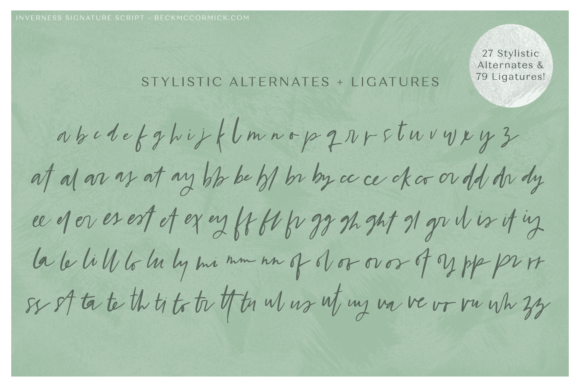 INVERNESS SIGNATURE SCRIPT - BECKMCCORMICK.COM
27 Stylistic
Alternates &
79 Ligatures!
STYLISTIC ALTERNATES + LIGATURES
a b c d e f g h i j k l m n o p q r r s t u v w x y z
at al ar as at ay bb be bl br by cc ce ck co cr dd dr dy
ee el er es est et ex ey ff fl fr gg gh ght gl gr il is it iy
la le li ll lo lu ly mi mm nn of ol or os ot oy pp pr rr
ss st ta te th ti to tr tt tu ul us ut uy va ve vo vu wh zz